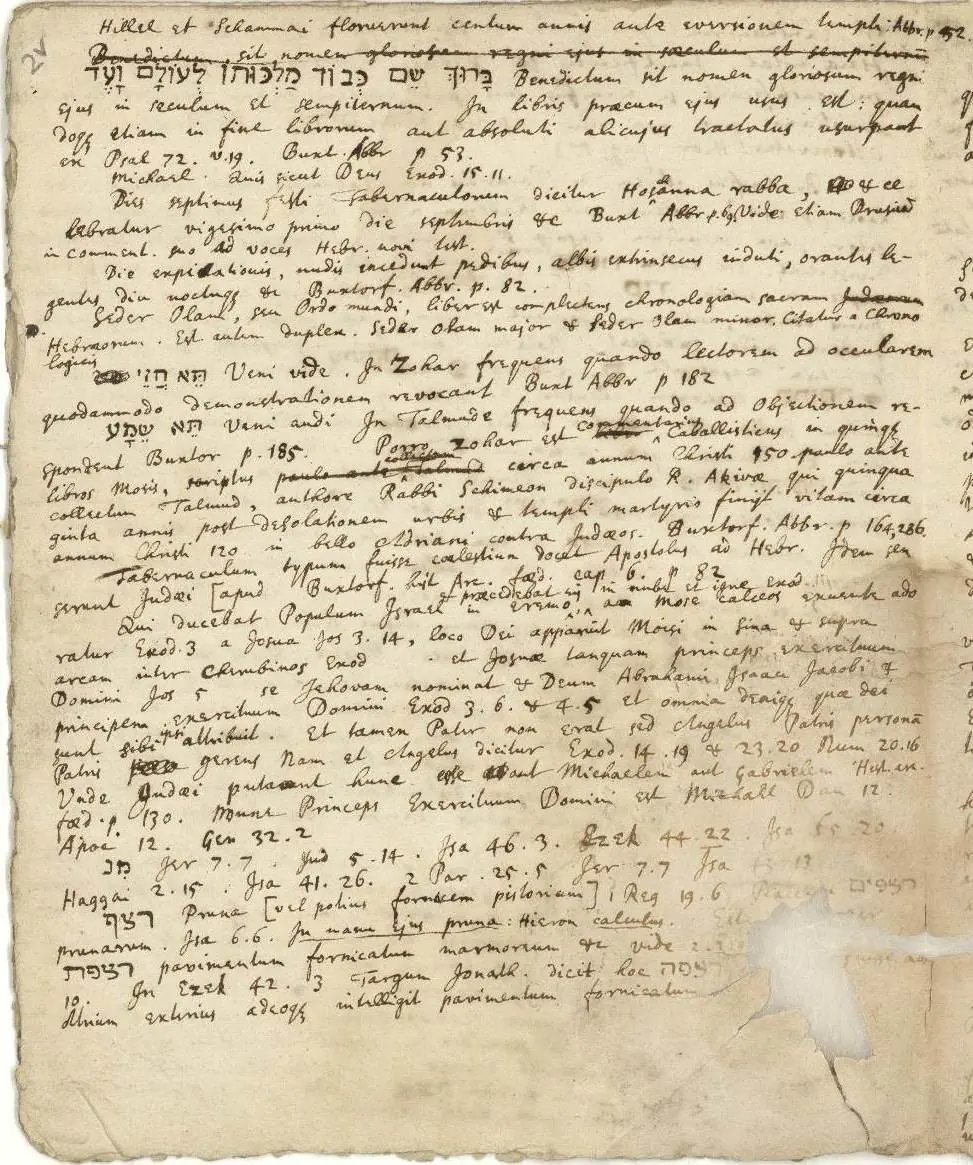 2v
Hillel et Schammai floruerunt centum annis ante eversionem templi. Abbr. p 452.
Benedictum sit nomen gloriosum regni ejus in sæculum et sempiternū
בָּרוּךְ שֵׁם כְּבוֹד מַלְכוּתוֹ לְעוֹלָם וָעֶד Benedictum sit nomen gloriosum regni
ejus in sæculum et sempiternum. In libris præcum ejus usus est: quan
doqꝫ etiam in fine librorum aut absoluti alicujus tractatus usurpant
ex Psal 72. v.19. Buxt. Abbr p 53.
Michael. Quis sicut Deus Exod. 15.11.
Dies septimus festi Tabernaculorum dicitur Hosanna rabba, & ce
lebratur vigesimo primo die septembris &c Buxt Abbr. p. 69 Vide etiam Drusiū
in comment. suo ad voces Hebr. novi test.
Die expiationis, nudis incedunt pedibus, albis extrinsecus induti, orantes le-
gentes diu noctuqꝫ &c Buxtorf. Abbr. p. 82.
Seder Olam, seu Ordo mundi, liber est complectens chronologiam sacram Judæorum
Hebræorum. Est autem duplex. Seder Olam major & Seder Olam minor. Citatur a Chrono
logicis
תֵּא חֲזֵי Veni vide. In Zohar frequens quando lectorem ad occularem
quodammodo demonstrationem revocant Buxt Abbr p 182
תֵּא שְׁמָע Veni audi In Talmude frequens quando ad Objectionem re-
spondent Buxtor p. 185. Porro Zohar est commentarius Caballisticus in quinqꝫ
libros Mosis, scriptus paulo ante Talmud circa annum Christi 150 paulo ante
collectum Talmud, authore Rabbi Schimeon discipulo R. Akivæ qui quinqua
ginta annis post desolationem urbis & templi martyrio finijt vitam circa
annum Christi 120 in bello Adriani contra Judæos. Buxtorf. Abbr. p 164, 286.
Tabernaculum typum fuisse cœlestium docet Apostolus ad Hebr. Idem sen
serunt Judæi [apud Buxtorf. hist Arc. fœd. cap 6. p 82
Qui ducebat Populum Israel in eremo, & præcedebat eū in nube et igne Exod a Mose calceos exuente ado
ratur Exod. 3 a Josua Jos 3. 14, loco Dei apparuit Mosi in Sina & supra
arcam inter Cherubinos Exod . et Josuæ tanquam princeps exercituum
Domini Jos 5 se Jehovam nominat & Deum Abrahami Isaaci Jacobi &
principem exercituum Domini Exod 3. 6. & 4. 5 et omnia deniqꝫ quæ dei
sunt sibi ipsi attribuit. Et tamen Pater non erat sed Angelus Patris personā
Patris gerens Nam et Angelus dicitur Exod. 14. 19 & 23. 20 Num 20. 16
Unde Judæi putarunt hunc esse aut Michaelem aut Gabrielem Hist arc.
fœd. p 130. Nunc Princeps Exercituum Domini est Michael Dan 12.
Apoc 12. Gen 32. 2
מִן Jer 7. 7. Jud 5. 14. Isa 46. 3. Ezek 44. 22. Isa 65. 20
Haggai 2. 15. Isa 41. 26. 2 Par. 25. 5 Jer 7.7 Isa
רצף Pruna [vel potius fornicem pistorium] 1 Reg 19. 6 רצפים
prunarum. Isa 6. 6. In manu ejus pruna: Hieron calculus. Est
רצפת pavimentum fornicatum marmoreum &c vide 2.
10. In Ezek 42. 3 Targum Jonath. dicit hoc רצפה
Atrium exterius adeoqꝫ intelligit pavimentum fornicatum